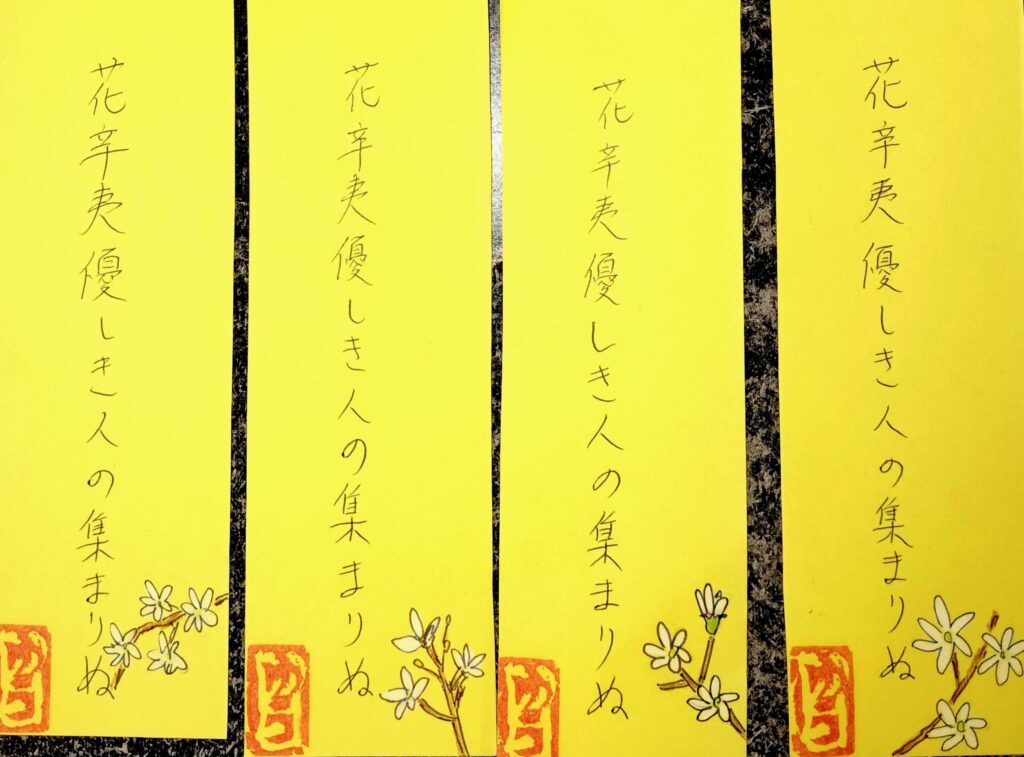 花辛夷優しき人の集まりぬ
花辛夷優しき人の集まりぬ
花辛夷優しき人の集まりぬ
花辛夷優しき人の集まりぬ